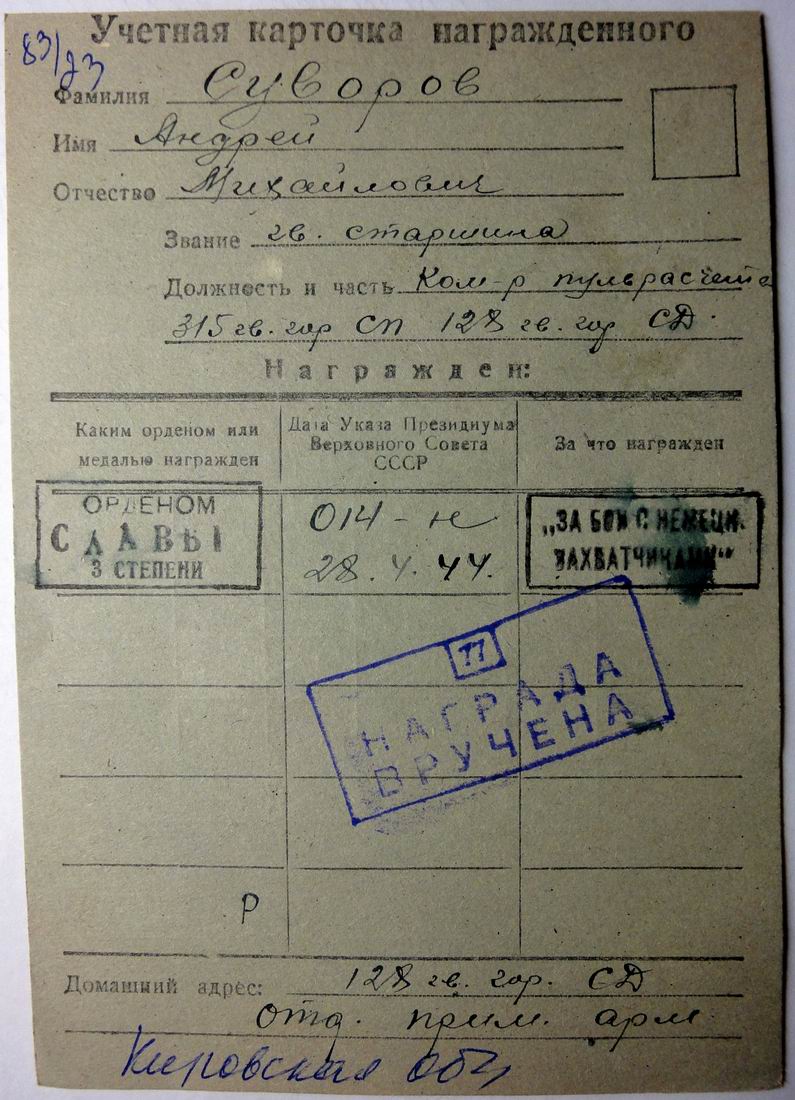 Учетная карточка награжденного
83/23
Фамилия Суворов
Имя Андрей
Отчество Михайлович
Звание гв. старшина
Должность и часть Ком-р пульрасчета
315 гв. гор СП 128 гв. гор СД.
Награжден:
Каким орденом или
медалью награжден
Дата Указа Президиума
Верховного Совета
СССР
За что награжден
ОРДЕНОМ
СЛАВЫ
3 СТЕПЕНИ
014-н
28.4.44.
„ЗА БОИ С НЕМЕЦК.
ЗАХВАТЧИКАМИ“
11
НАГРАДА
ВРУЧЕНА
Р
Домашний адрес: 128 гв. гор. СД
отд. прим. арм
Кировская обл